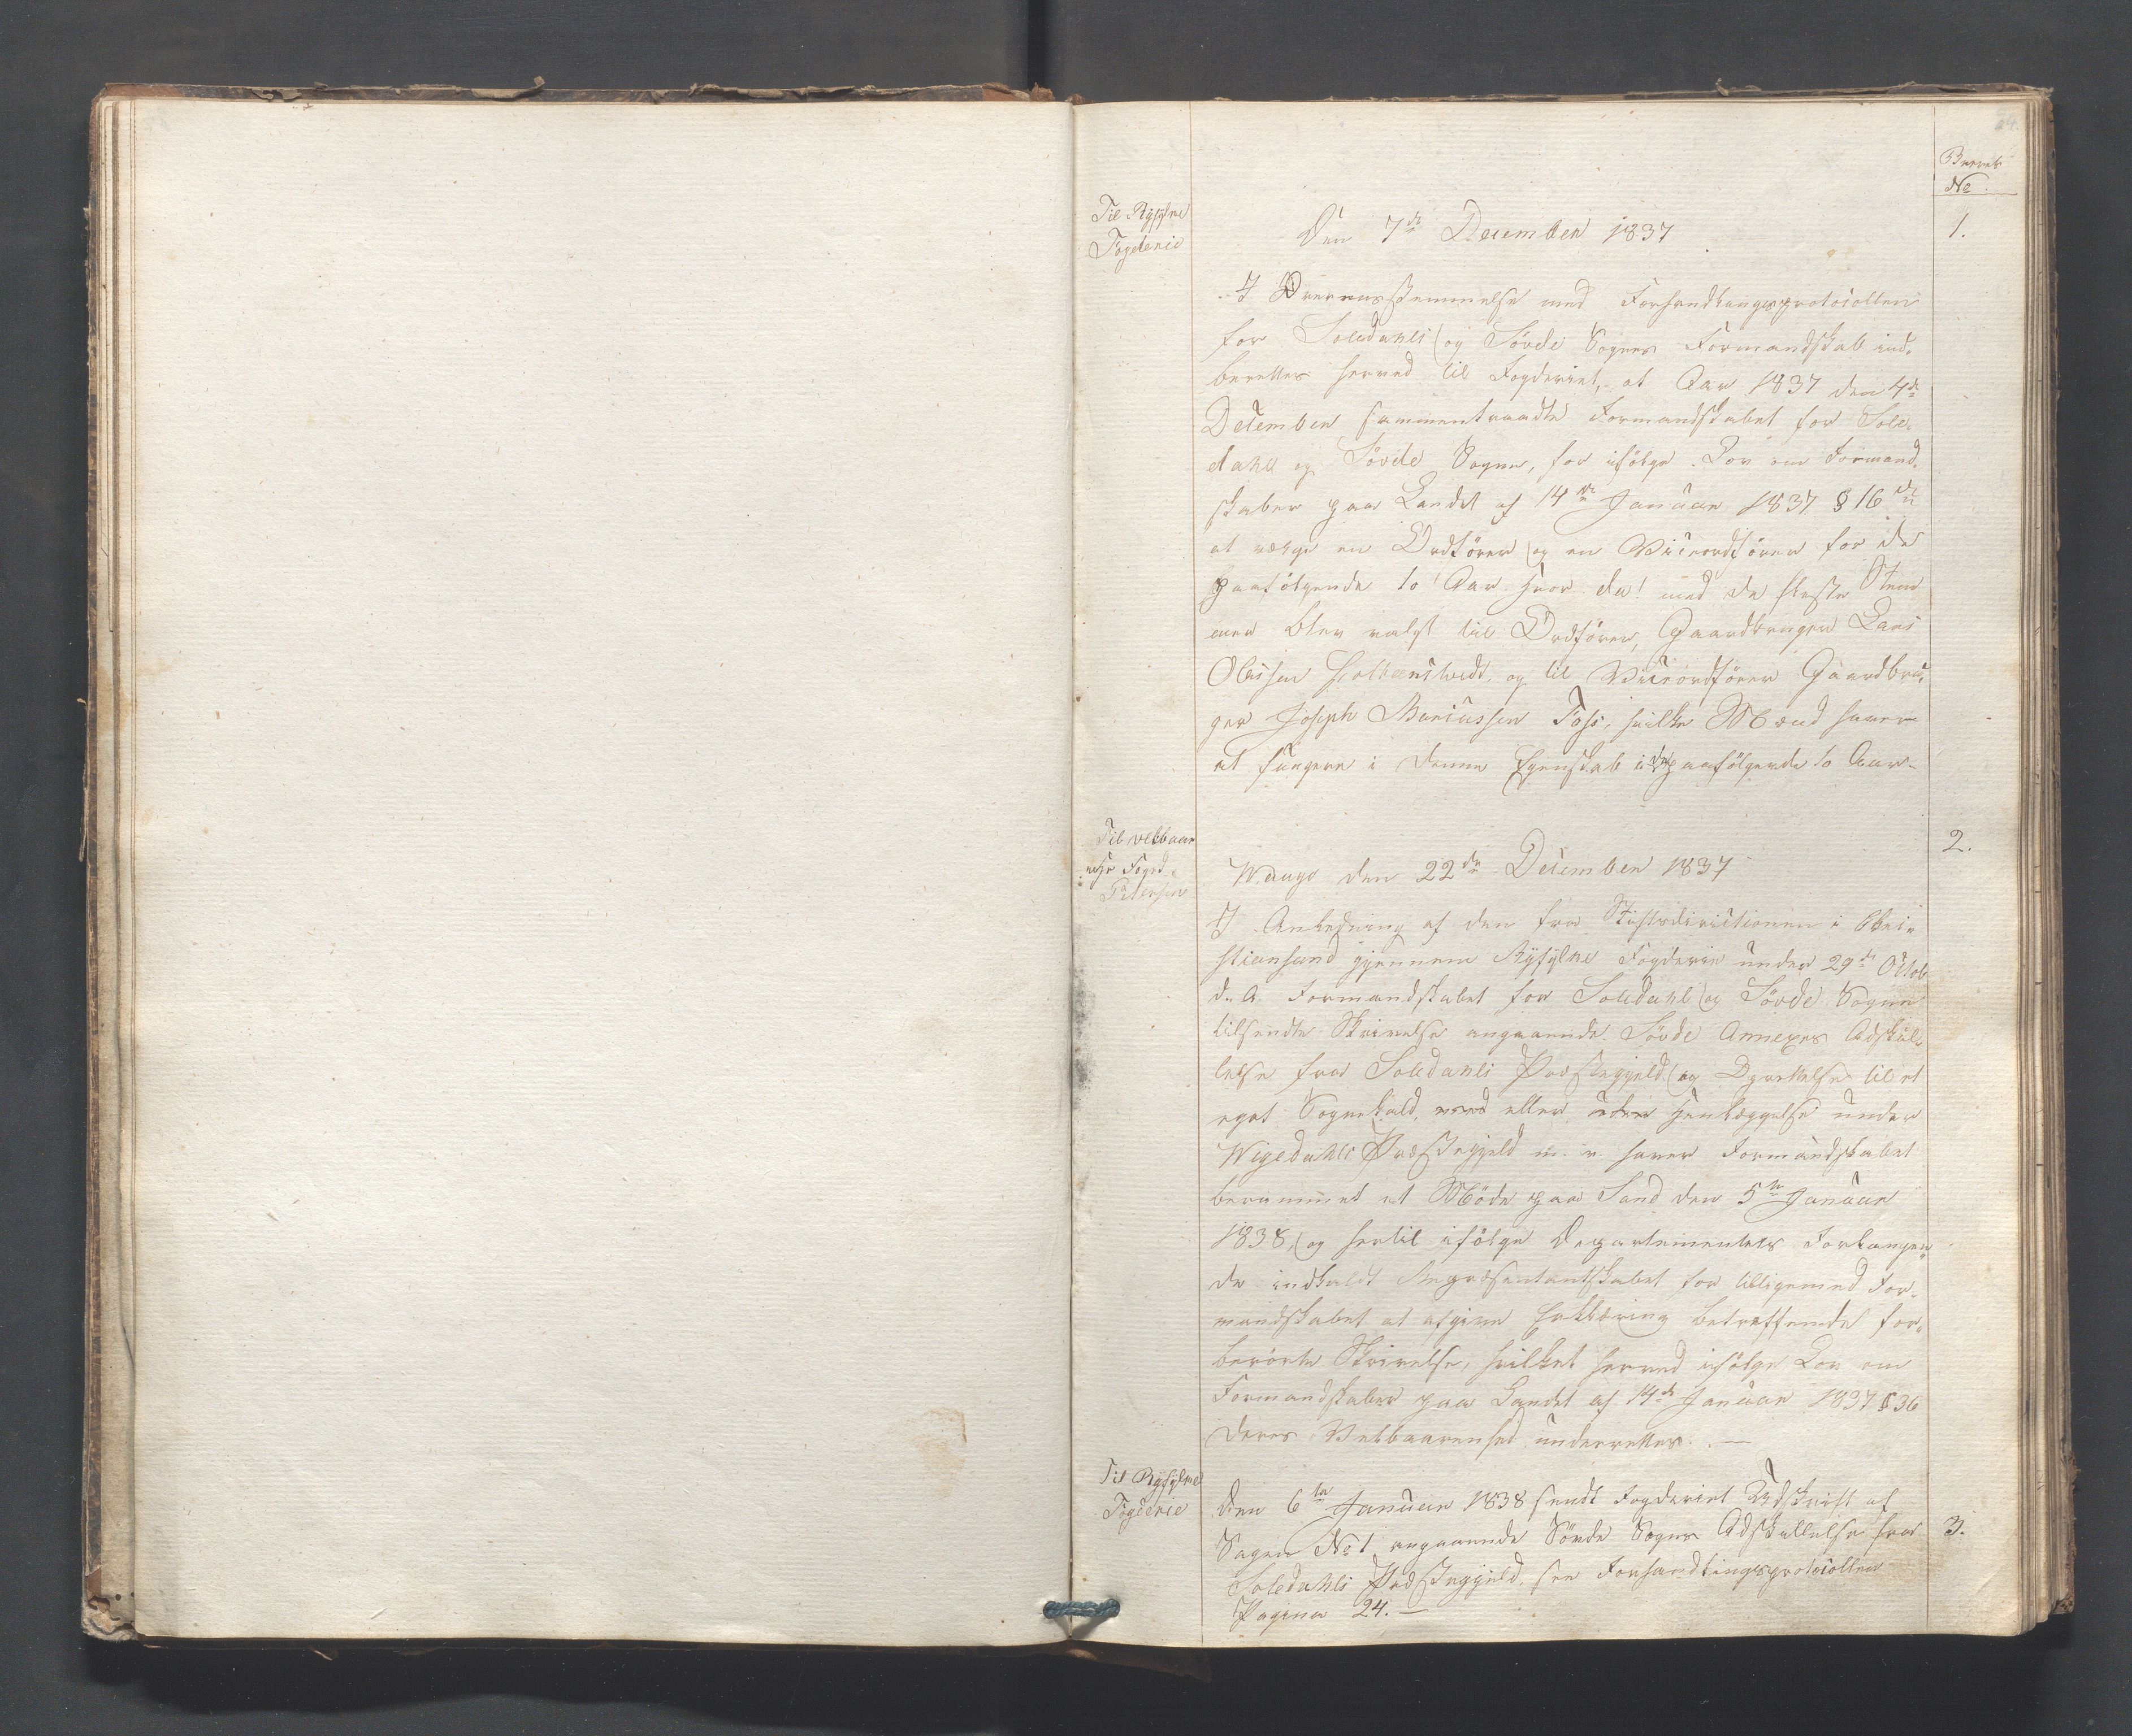 Brevets
No
Til Ryfylke
Fogderie
1.
Den 7de December 1837
I Overensstemmelse med Forhandlingsprotocollen
for Soledahls og Søvde Sognes Formandskab ind-
berettes herved til Fogderiet, at Aar 1837 den 4de
December sammentraadte Formandskabet for Sole-
dahl og Søvde Sogne, for ifølge Lov om Formand-
skaber paa Landet af 14de Januar 1837 § 16de
at vælge en Ordfører og en Viceordfører for de
paafølgende to Aar hvor da med de fleste Stem
mer blev valgt til Ordfører, Gaardbruger Lars
Olassen og til Viceordfører Gaardbru-
ger Joseph Foss, hvilke Mænd haver
at fungere i denne Egenskab i de paafølgende to Aar.
Til velbaar
Hr Foged
Petersen
2.
Wange den 22de December 1837
I Anledning af den fra Stiftsdirectionen i Chri-
stiansand gjennem Ryfylke Fogderie under 29de Octob
d. A. Formandskabet for Soledahl og Søvde Sogne
tilsendte Skrivelse angaaende Søvde Annexes Adskil-
lelse fra Soledahls Præstegjeld og Oprettelse til et
eget Sognekald, eller Henlæggelse under
Wigedahls Præstegjeld m. v. haver Formandskabet
berammet et Møde paa Sand den 5te Januar
1838, og hertil ifølge Departementets Forlangen-
de indkaldt Repræsentantskabet for tilligemed For-
mandskabet at afgive Erklæring betræffende for-
berørte Skrivelse, hvilket herved ifølge Lov om
Formandskaber paa Landet af 14de Januar 1837 § 36
Deres Velbaarenhed underrettes. —
Til Ryfylke
Fogderie
Den 6te Januar 1838 sendt Fogderiet Udskrift af
3.
Sagen No 1 angaaende Søvde Sogns Adskillelse fra
Soledahls Præstegjeld, see Forhandlingsprotocollen
Pagina 24. —